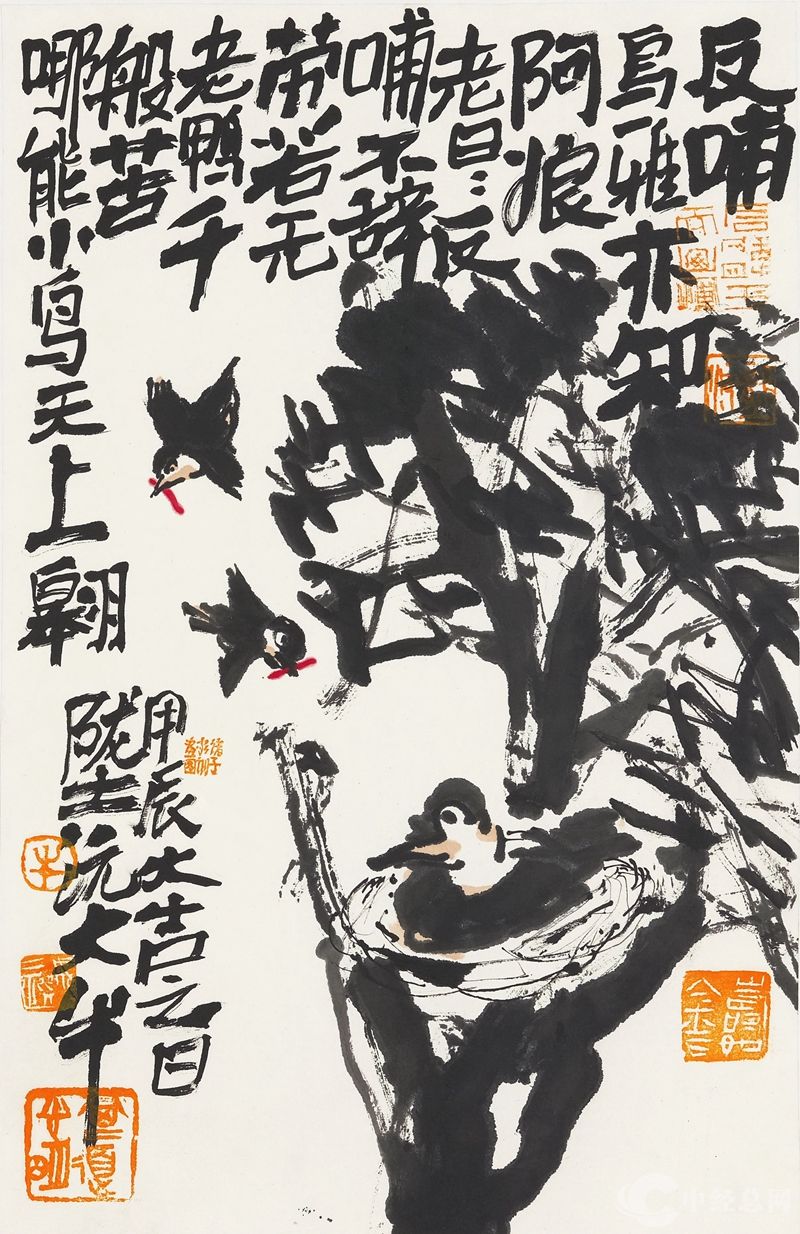 反哺
乌雅亦知
阿娘
老日々反
哺不辞
劳若无
老鸭千
般苦
哪能小鸟天上翱
甲辰大吉之日
陇士沅大牛
中经总网